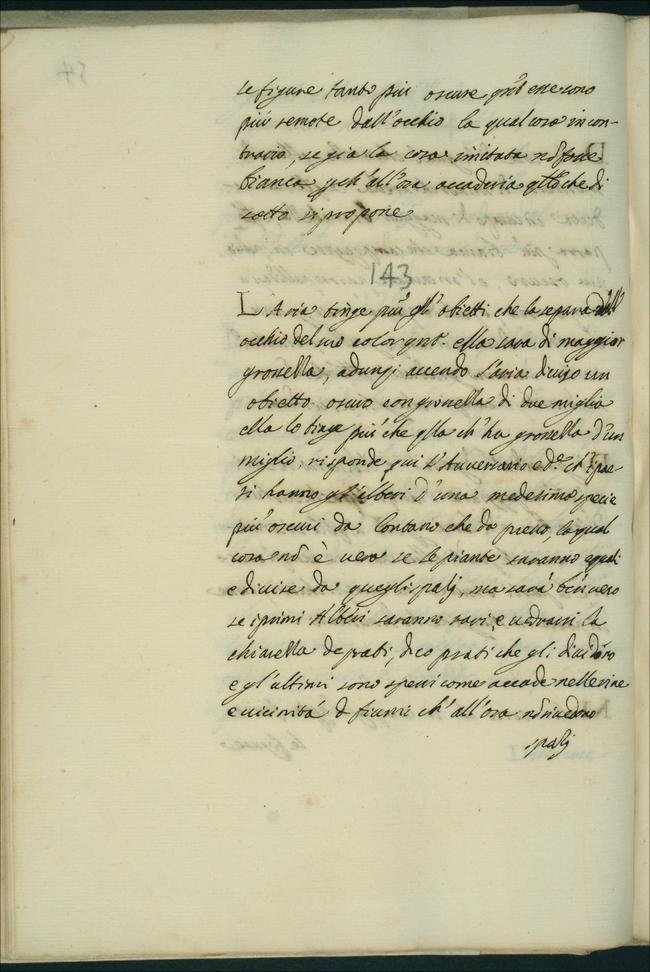 le figure tanto piu oscure qnto ene sono
più remote dall'occhio la qual cosa in con-
trario, se gia la cosa imitata nō fosse
bianca pch' all'ora accaderia qllo che di
sotto si propone
143
L'Aria tinge più gl'obietti che la separa dall'
occhio del suo color qnto ella sara di maggior
grossella, adunq; auendo l'aria diuiso un
obietto oscuro con grossella di due miglia
ella lo tinge piu' che qlla ch'ha grossella d'un
miglio, risponde qui l'Auuersario e de ch'i pae-
si hanno gl'Alberi d'una medesima specie
piu' oscuri da lontano che da presso, la qual
cosa nō è uera se le piante saranno equali
e diuise da quegli spatij, ma sará ben uero
se i primi Alberi saranno rari, e uedrassi la
chiarella de prati, dico prati che gli diuidono
e gl'ultimi sono spessi come accade nelle riue
e uicinitá d fiumi ch' all'ora nō si uedono
spatij
54